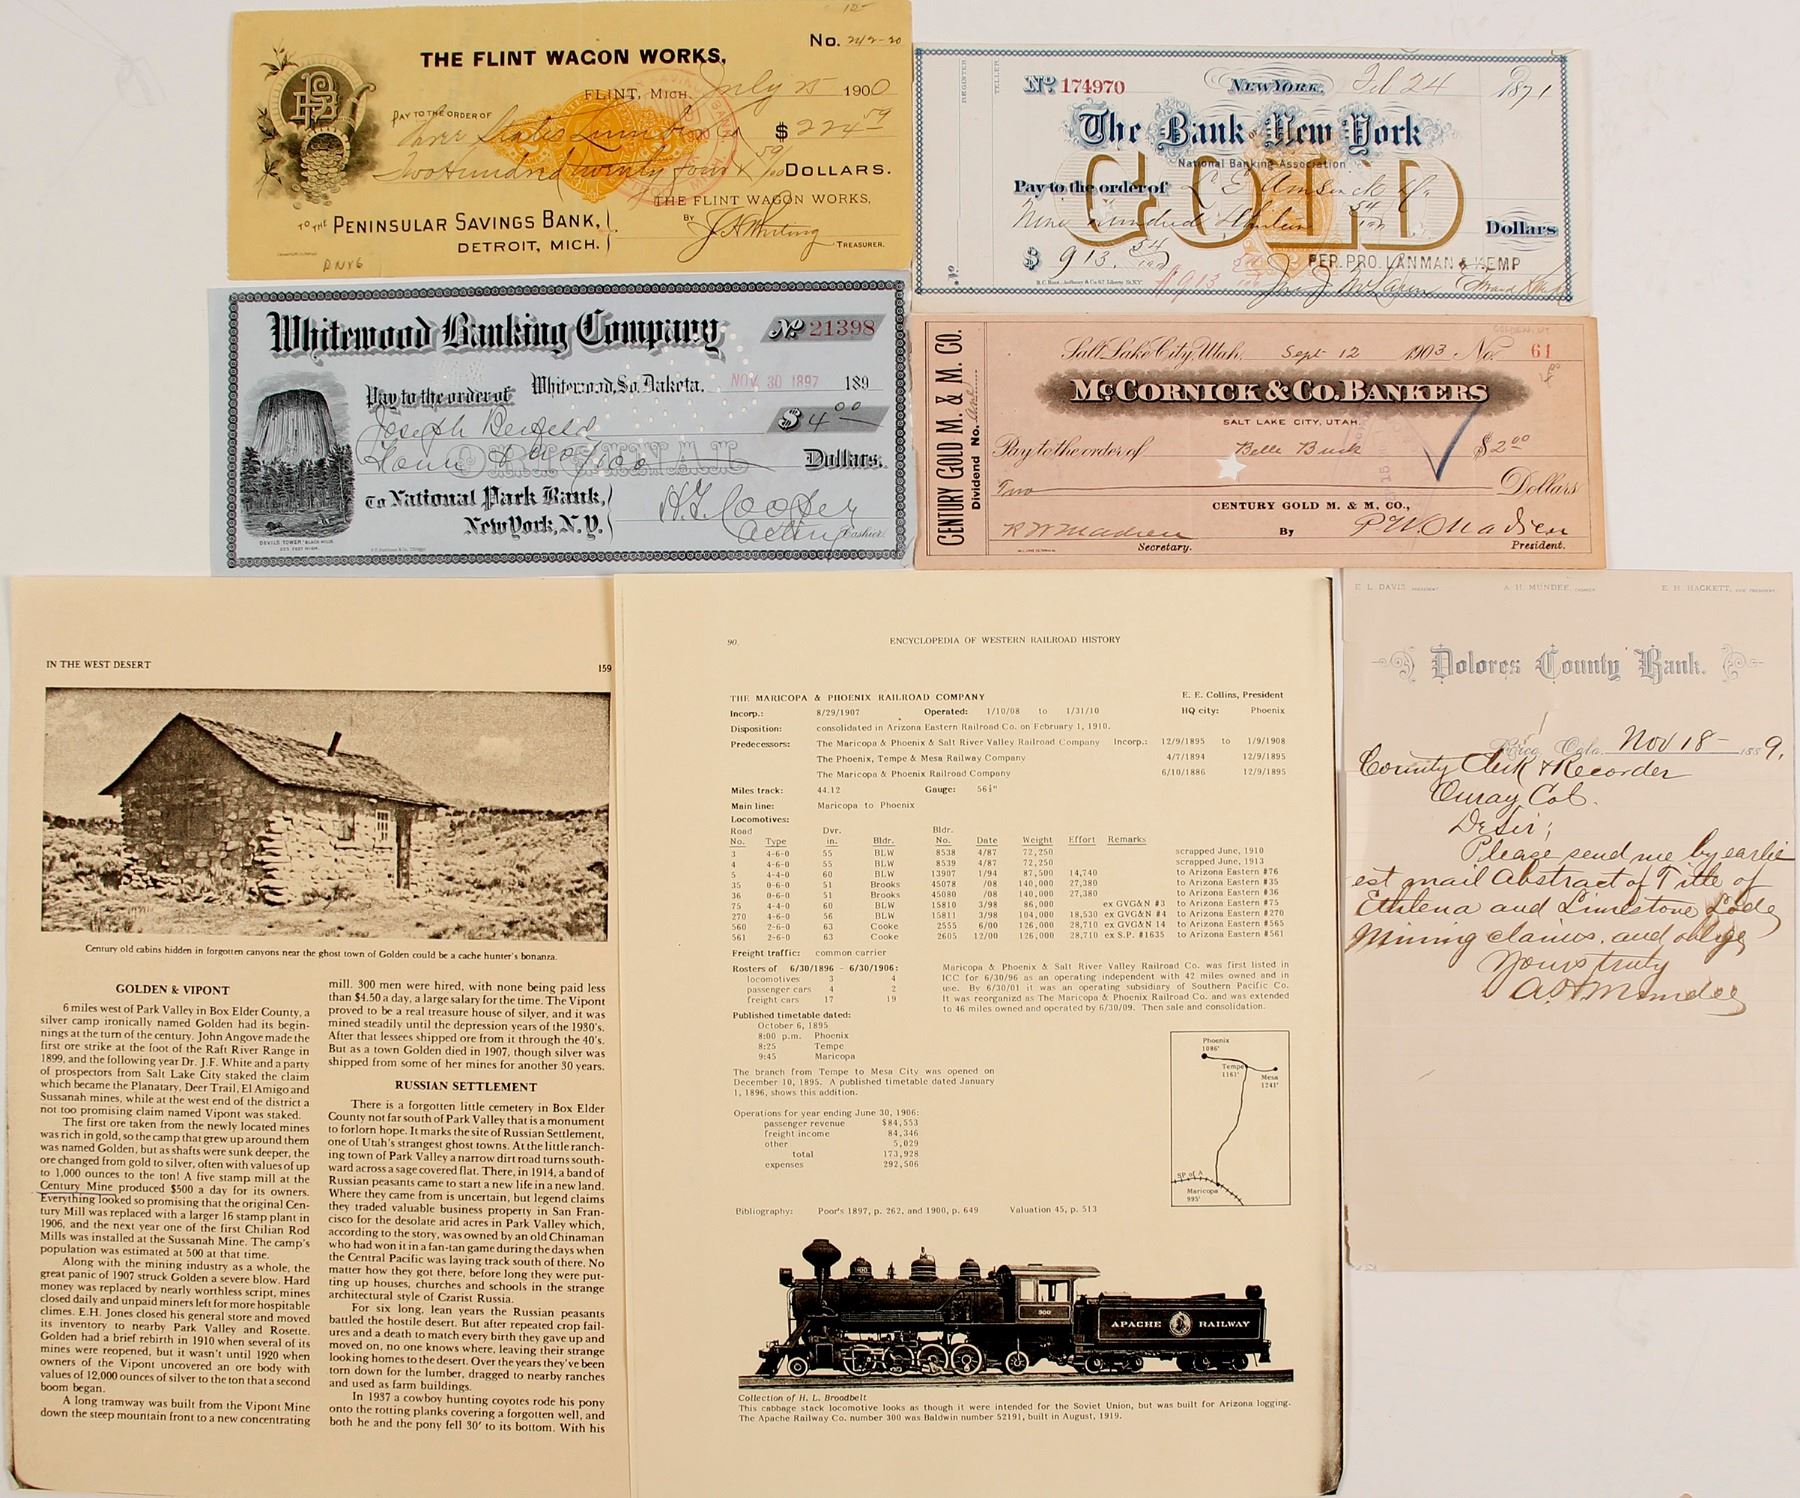 THE FLINT WAGON WORKS,
No. 242-20
FLINT, MICH. July 25 1900
PAY TO THE ORDER OF
Three States Lumber Co $ 224 59
Two Hundred twenty four & 59/100 DOLLARS.
THE FLINT WAGON WORKS,
TO THE PENINSULAR SAVINGS BANK,
DETROIT, MICH.
BY J H Whiting
TREASURER.
RNX6
REGISTER
TELLER
No 174970
NEW YORK, Feb 24 1871
The Bank of New York
National Banking Association
GOLD
Pay to the order of L E Amsinck & Co
Nine hundred thirteen 54/100 Dollars
$ 913. 54/100
$913
PER. PRO. LANMAN & KEMP
Whitewood Banking Company
No 21398
Whitewood, So. Dakota. NOV 30 1897 189
Pay to the order of
$ 4 00
Joseph
Four & no/100 Dollars.
To National Park Bank,
New York, N.Y.
Acting Cashier.
DEVILS TOWER BLACK HILLS
CENTURY GOLD M. & M. CO.
Dividend No. One
GOLDEN, UT
Salt Lake City, Utah, Sept 12 1903 No. 61
McCORNICK & CO. BANKERS
SALT LAKE CITY, UTAH.
Pay to the order of Belle Buck $ 2 00
Two Dollars
CENTURY GOLD M. & M. CO.,
R W Madsen
Secretary.
By P W Madsen
President.
E. L. DAVIS, PRESIDENT. A. H. MUNDEE, CASHIER. E. H. HACKETT, VICE PRESIDENT.
Dolores County Bank.
Rico, Colo. Nov 18 - 1889.
County Clerk & Recorder
Ouray Col.
Dr Sir;
Please send me by earli
est mail Abstract of Title of
Ethlena and Limestone Lode
Mining claims, and oblige
Yours truly
A H Mundee
IN THE WEST DESERT 159
Century old cabins hidden in forgotten canyons near the ghost town of Golden could be a cache hunter's bonanza.
GOLDEN & VIPONT
6 miles west of Park Valley in Box Elder County, a
silver camp ironically named Golden had its begin-
nings at the turn of the century. John Angove made the
first ore strike at the foot of the Raft River Range in
1899, and the following year Dr. J.F. White and a party
of prospectors from Salt Lake City staked the claim
which became the Planatary, Deer Trail, El Amigo and
Susannah mines, while at the west end of the district a
not too promising claim named Vipont was staked.
The first ore taken from the newly located mines
was rich in gold, so the camp that grew up around them
was named Golden, but as shafts were sunk deeper, the
ore changed from gold to silver, often with values of up
to 1,000 ounces to the ton! A five stamp mill at the
Century Mine produced $500 a day for its owners.
Everything looked so promising that the original Cen-
tury Mill was replaced with a larger 16 stamp plant in
1906, and the next year one of the first Chilian Rod
Mills was installed at the Sussanah Mine. The camp's
population was estimated at 500 at that time.
Along with the mining industry as a whole, the
great panic of 1907 struck Golden a severe blow. Hard
money was replaced by nearly worthless script, mines
closed daily and unpaid miners left for more hospitable
climes. E.H. Jones closed his general store and moved
its inventory to nearby Park Valley and Rosette.
Golden had a brief rebirth in 1910 when several of its
mines were reopened, but it wasn't until 1920 when
owners of the Vipont uncovered an ore body with
values of 12,000 ounces of silver to the ton that a second
boom began.
A long tramway was built from the Vipont Mine
down the steep mountain front to a new concentrating
mill. 300 men were hired, with none being paid less
than $4.50 a day, a large salary for the time. The Vipont
proved to be a real treasure house of silver, and it was
mined steadily until the depression years of the 1930's.
After that lessees shipped ore from it through the 40's.
But as a town Golden died in 1907, though silver was
shipped from some of her mines for another 30 years.
RUSSIAN SETTLEMENT
There is a forgotten little cemetery in Box Elder
County not far south of Park Valley that is a monument
to forlorn hope. It marks the site of Russian Settlement,
one of Utah's strangest ghost towns. At the little ranch-
ing town of Park Valley a narrow dirt road turns south-
ward across a sage covered flat. There, in 1914, a band of
Russian peasants came to start a new life in a new land.
Where they came from is uncertain, but legend claims
they traded valuable business property in San Fran-
cisco for the desolate arid acres in Park Valley which,
according to the story, was owned by an old Chinaman
who had won it in a fan-tan game during the days when
the Central Pacific was laying track south of there. No
matter how they got there, before long they were put-
ting up houses, churches and schools in the strange
architectural style of Czarist Russia.
For six long, lean years the Russian peasants
battled the hostile desert. But after repeated crop fail-
ures and a death to match every birth they gave up and
moved on, no one knows where, leaving their strange
looking homes to the desert. Over the years they've been
torn down for the lumber, dragged to nearby ranches
and used as farm buildings.
In 1937 a cowboy hunting coyotes rode his pony
onto the rotting planks covering a forgotten well, and
both he and the pony fell 30' to its bottom. With his
90. ENCYCLOPEDIA OF WESTERN RAILROAD HISTORY
THE MARICOPA & PHOENIX RAILROAD COMPANY E. E. Collins, President
Incorp.: 8/29/1907 Operated: 1/10/08 to 1/31/10 HQ city: Phoenix
Disposition: consolidated in Arizona Eastern Railroad Co. on February 1, 1910.
Predecessors: The Maricopa & Phoenix & Salt River Valley Railroad Company Incorp.: 12/9/1895 to 1/9/1908
The Phoenix, Tempe & Mesa Railway Company 4/7/1894 12/9/1895
The Maricopa & Phoenix Railroad Company 6/10/1886 12/9/1895
Miles track: 44.12 Gauge: 56½"
Main line: Maricopa to Phoenix
Locomotives:
Road Dvr. Bldr.
No. Type in. Bldr. No. Date Weight Effort Remarks
3 4-6-0 55 BLW 8538 4/87 72,250 scrapped June, 1910
4 4-6-0 55 BLW 8539 4/87 72,250 scrapped June, 1913
5 4-4-0 60 BLW 13907 1/94 87,500 14,740 to Arizona Eastern #76
35 0-6-0 51 Brooks 45078 /08 140,000 27,380 to Arizona Eastern #35
36 0-6-0 51 Brooks 45080 /08 140,000 27,380 to Arizona Eastern #36
75 4-4-0 60 BLW 15810 3/98 86,000 ex GVG&N #3 to Arizona Eastern #75
270 4-6-0 56 BLW 15811 3/98 104,000 18,530 ex GVG&N #4 to Arizona Eastern #270
560 2-6-0 63 Cooke 2555 6/00 126,000 28,710 ex GVG&N 14 to Arizona Eastern #565
561 2-6-0 63 Cooke 2605 12/00 126,000 28,710 ex S.P. #1635 to Arizona Eastern #561
Freight traffic: common carrier
Rosters of 6/30/1896 - 6/30/1906:
locomotives 3 4
passenger cars 4 2
freight cars 17 19
Maricopa & Phoenix & Salt River Valley Railroad Co. was first listed in
ICC for 6/30/96 as an operating independent with 42 miles owned and in
use. By 6/30/01 it was an operating subsidiary of Southern Pacific Co.
It was reorganized as The Maricopa & Phoenix Railroad Co. and was extended
to 46 miles owned and operated by 6/30/09. Then sale and consolidation.
Published timetable dated:
October 6, 1895
8:00 p.m. Phoenix
8:25 Tempe
9:45 Maricopa
The branch from Tempe to Mesa City was opened on
December 10, 1895. A published timetable dated January
1, 1896, shows this addition.
Operations for year ending June 30, 1906:
passenger revenue $84,553
freight income 84,346
other 5,029
total 173,928
expenses 292,506
Phoenix
1086'
Tempe
1161'
Mesa
1241'
SP of A
Maricopa
995'
Bibliography: Poor's 1897, p. 262, and 1900, p. 649 Valuation 45, p. 513
300
APACHE RAILWAY
Collection of H. L. Broadbelt
This cabbage stack locomotive looks as though it were intended for the Soviet Union, but was built for Arizona logging.
The Apache Railway Co. number 300 was Baldwin number 52191, built in August, 1919.